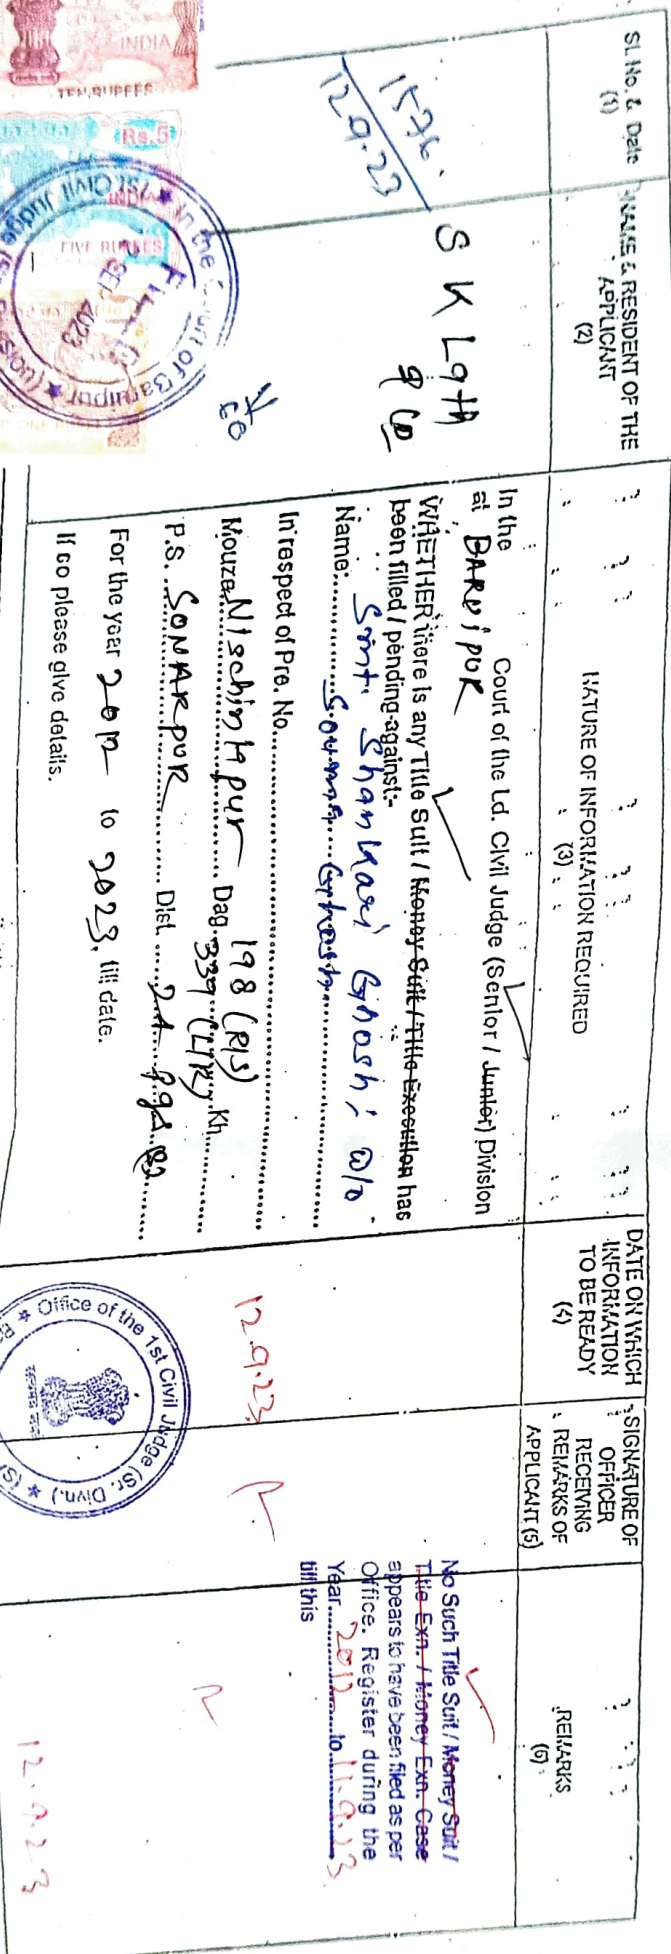 SI. No. & Date
(1)
NAME & RESIDENT OF THE
APPLICANT
(2)
NATURE OF INFORMATION REQUIRED
(3)
DATE ON WHICH
INFORMATION
TO BE READY
(4)
SIGNATURE OF
OFFICER
RECEIVING
REMARKS OF
APPLICANT (5)
REMARKS
(6)
1576.
12.9.23
S K
In the Court of the Ld. Civil Judge (Senior / Junior) Division
at BARUIPUR
WHETHER there is any Title Suit / Money Suit / Title Execution has
been filled / pending against:-
Name:.......... Smt. Shankari Ghosh, W/o
Ghosh
In respect of Pre. No.
Mouza Nischintapur Dag. 198 (RS) 339 (LR) Kh.
P.S. SONARPUR Dist. 24 Pgs (S)
For the year 2012 to 2023, till date.
If so please give details.
12.9.23
No Such Title Suit / Money Suit /
Title Exn. / Money Exn. Case
appears to have been filed as per
Office. Register during the
Year 2012 to 11.9.23
till this
12.9.23
INDIA
TEN RUPEES
Rs.5
INDIA
FIVE RUPEES
In the Court of Baruipur
1st Civil Judge
SEP 2023
Office of the 1st Civil Judge (Sr. Divn.)